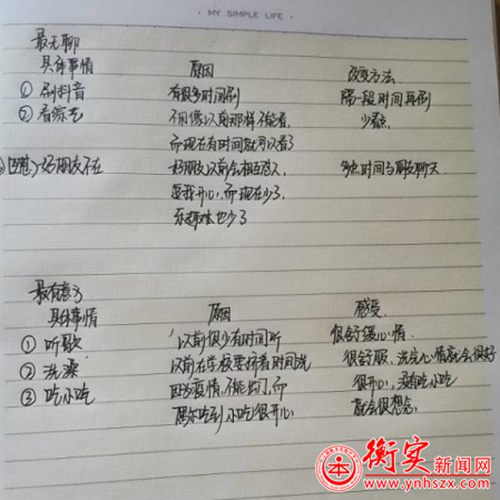 MY SIMPLE LIFE
最无聊
具体事情 原因 改变方法
① 刷抖音 有很多时间刷 隔一段时间再刷
② 看综艺 不用像以前那样不能看, 少看点
而现在有时间就可以看了
好朋友不在 好朋友以前会相互 多点时间与朋友聊天
逗我开心,而现在少了,
乐趣 也少了
最有意义
具体事情 原因 感受
① 听歌 以前很少有时间听 很舒缓心情
② 洗澡 以前在学校要挤着时间洗 很舒服,洗完心情就会很好
③ 吃小吃 因为疫情,不能出门,而 很开心,没有吃小吃
偶尔吃到小吃很开心 就会很想念.
衡实新闻网
www.ynhszx.com